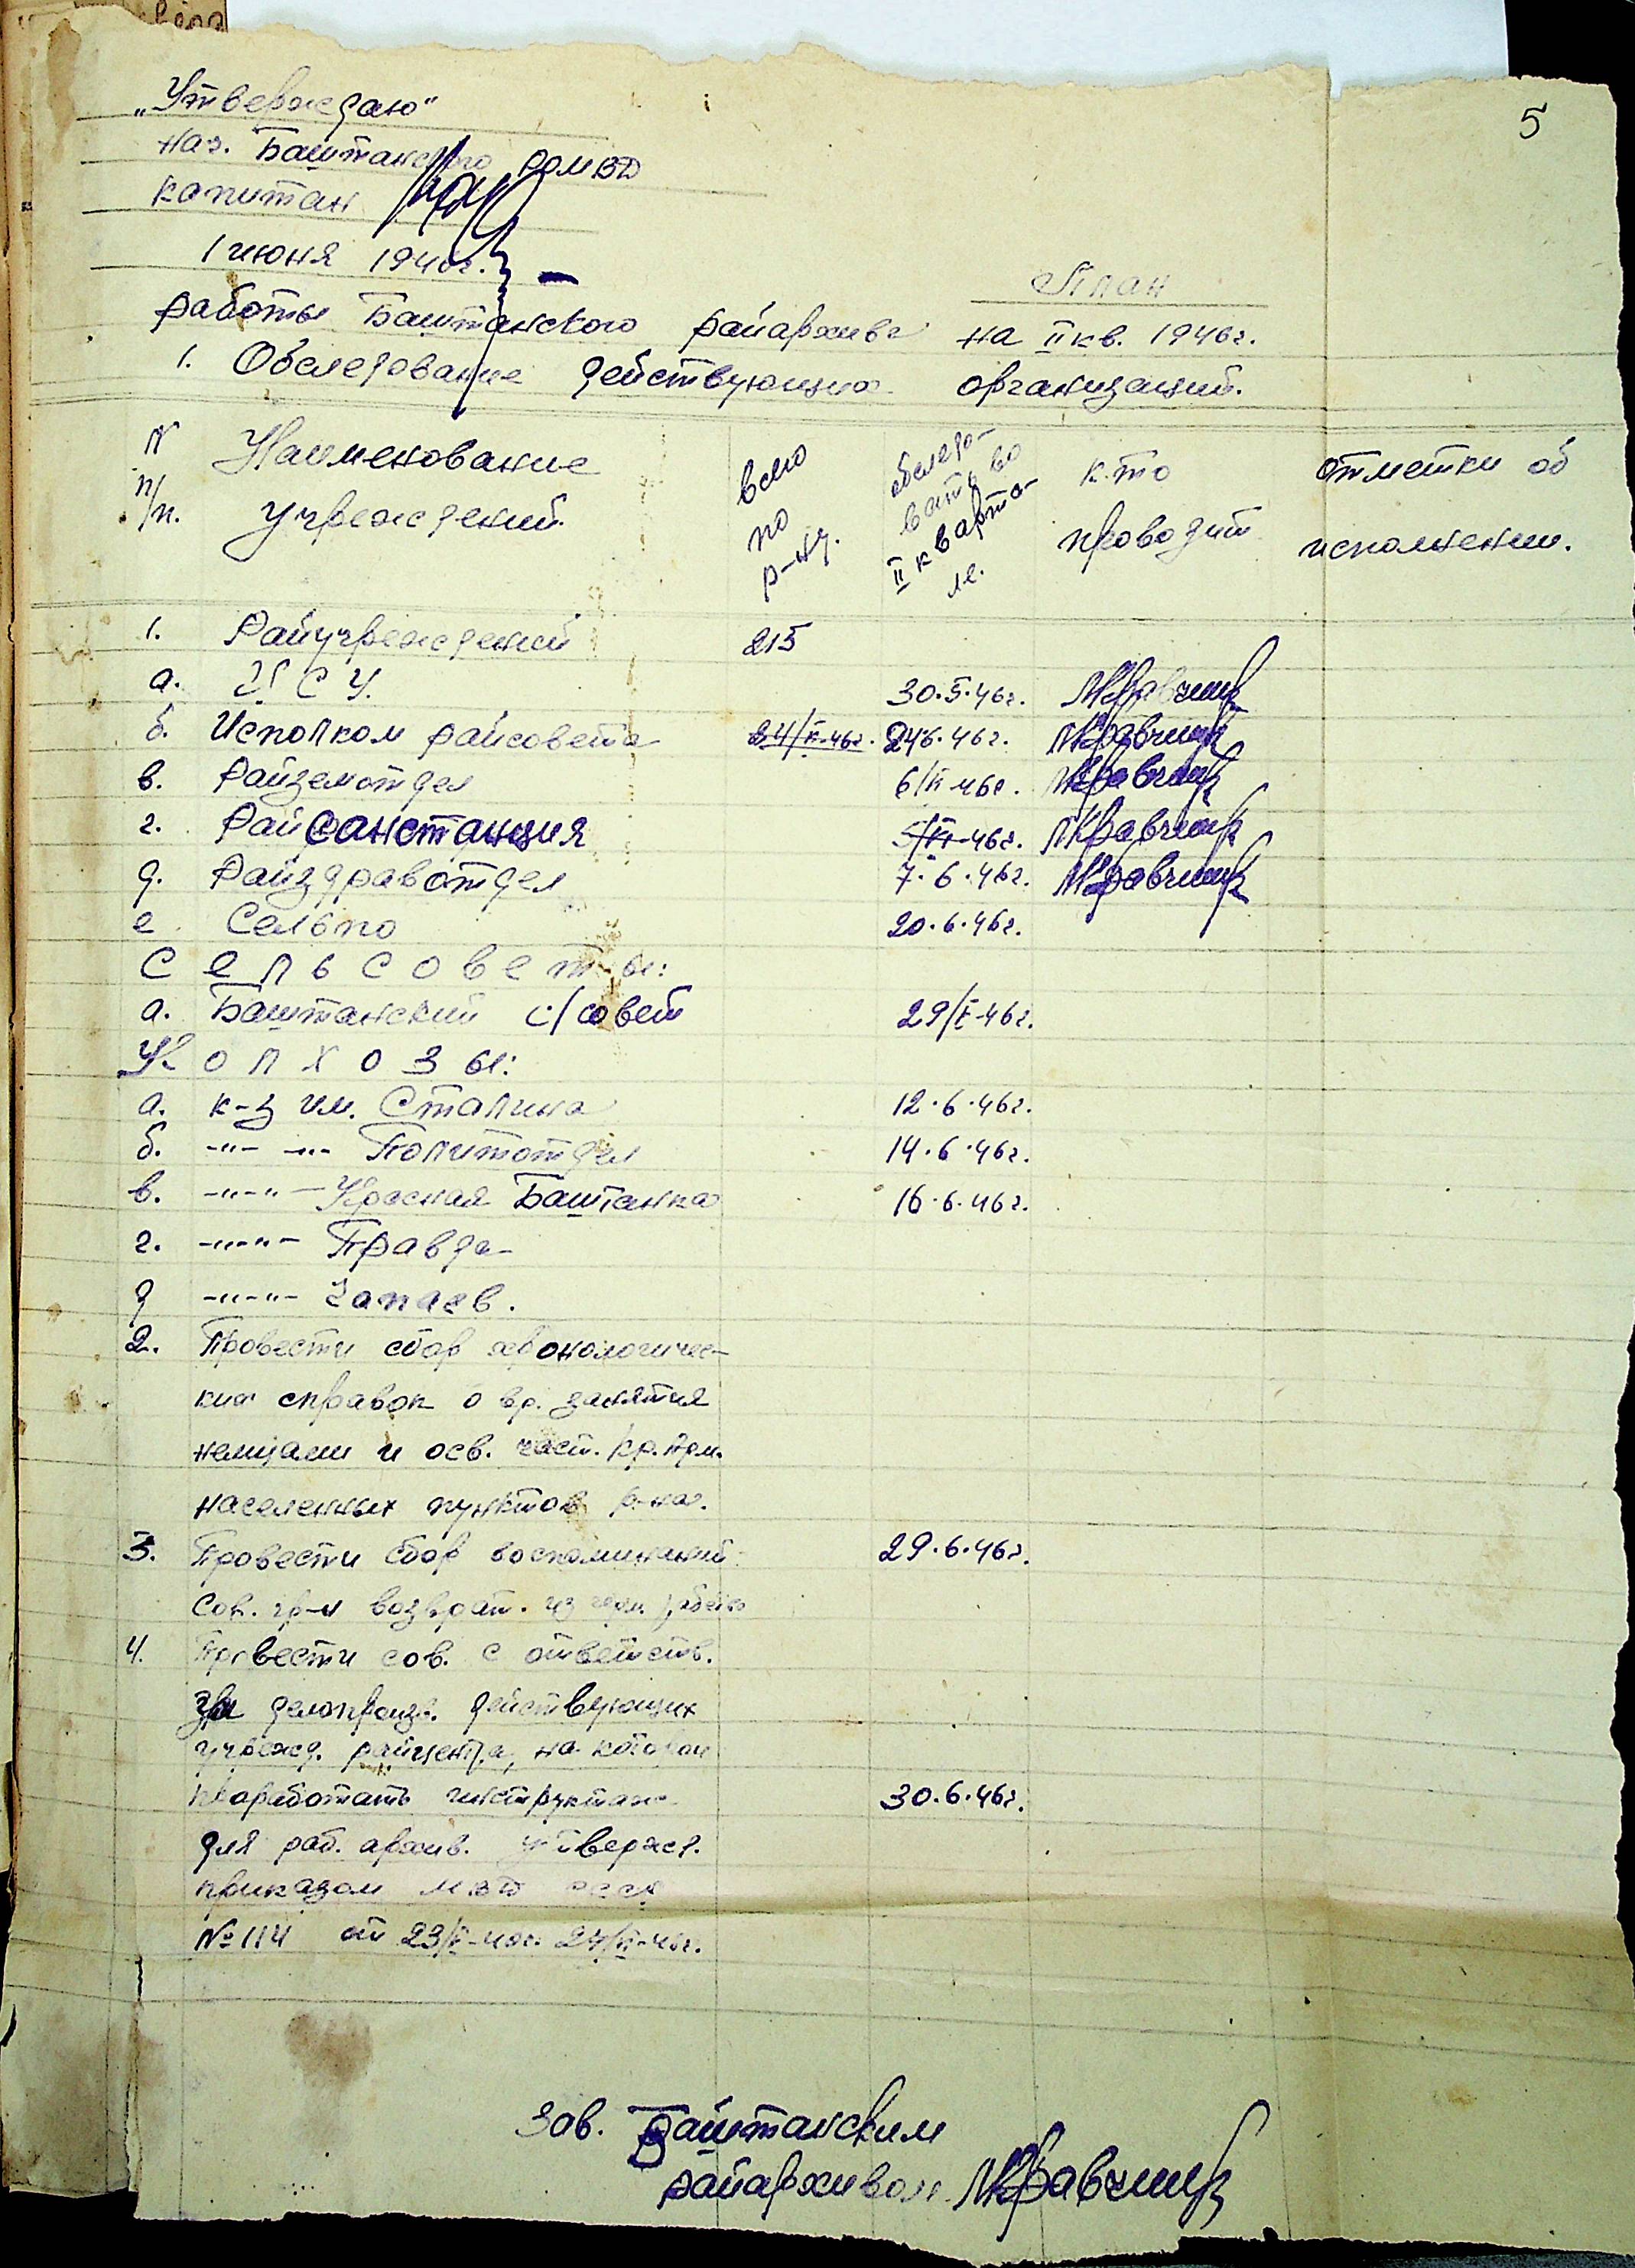 5
„Утверждаю"
нач. Баштанского РОМВД
капитан
1 июня 1946г.
План
работы Баштанского райархива на II кв. 1946г.
1. Обследование действующих организаций.
N п/п. Наименование учреждений. всего по р-ну. обследовать во II квартале. кто проводит отметки об исполнении.
1. Райучреждений 215
а. ЦСУ. 30.5.46г. МКравчик
б. Исполком райсовета 24/V-46г. 24.6.46г. МКравчик
в. Райземотдел 6/VI-46г. МКравчик
г. Райсанстанция 5/VI-46г. МКравчик
д. Райздравотдел 7.6.46г. МКравчик
е Сельпо 20.6.46г.
Сельсоветы:
а. Баштанский с/совет 29/V-46г.
Колхозы:
а. к-з им. Сталина 12.6.46г.
б. -"- -"- Политотдел 14.6.46г.
в. -"-"- Красная Баштанка 16.6.46г.
г. -"-"- Правда
д -"-"- Чапаев.
2. Провести сбор хронологичес-
ких справок о вр. занятия
немцами и осв. част. Кр. Арм.
населенных пунктов р-на.
3. Провести сбор воспоминаний 29.6.46г.
Сов. гр-н возврат. из
4. Провести сов. с ответств.
за делопроизв. действующих
учрежд. райцентра, на котором
проработать инструктаж 30.6.46г.
для раб. архив. утвержд.
приказом МВД
№114 от
Зав. Баштанским
райархивом МКравчик